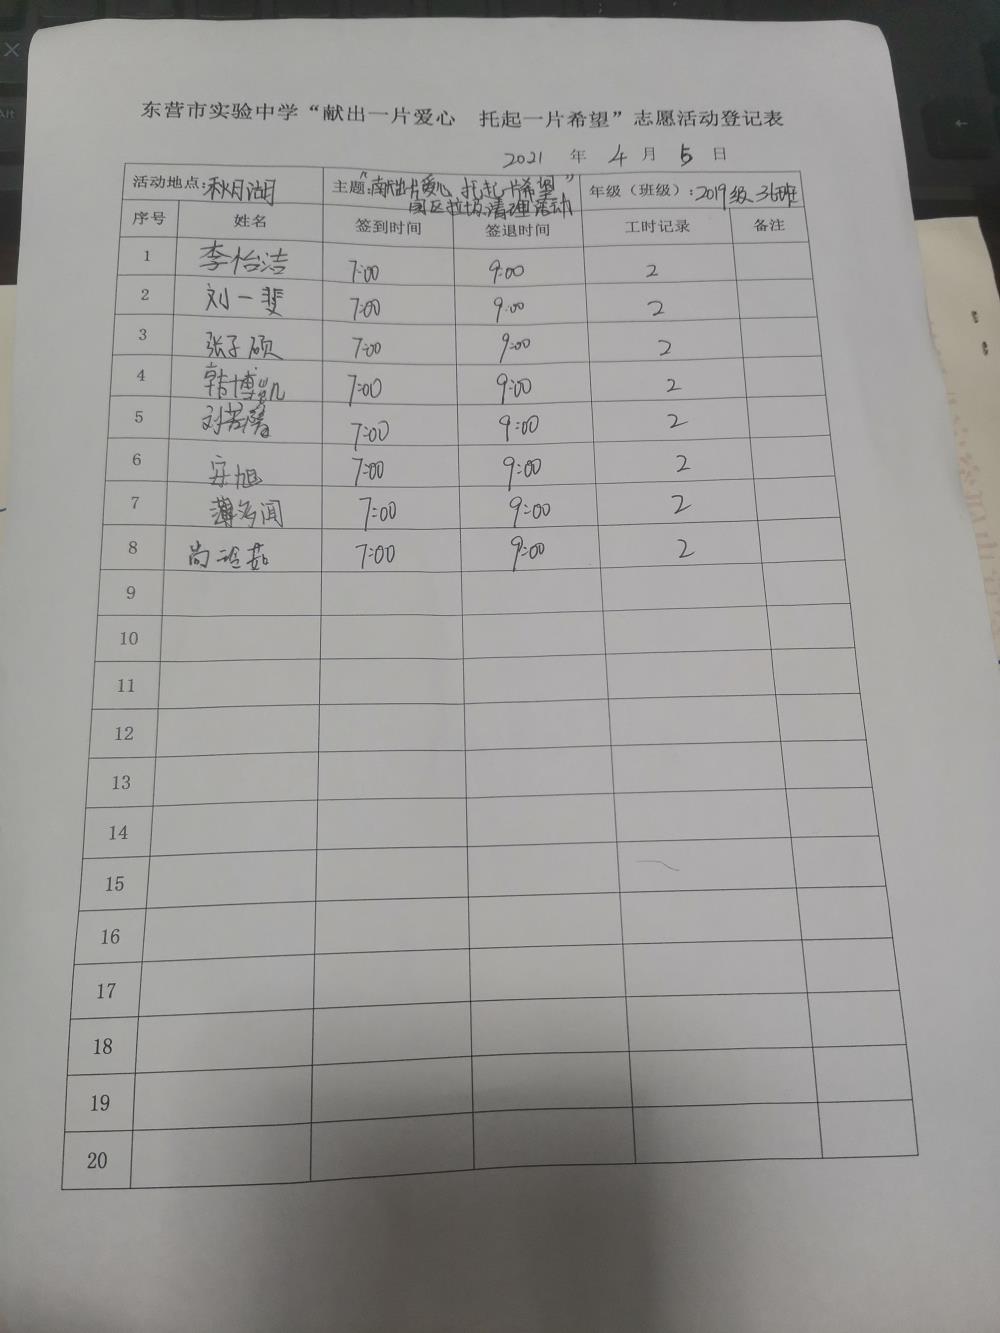 东营市实验中学“献出一片爱心 托起一片希望”志愿活动登记表
2021 年 4 月 5 日
活动地点:秋月湖 主题:“献出一片爱心 托起一片希望” 年级（班级）:2019级 36班
园区垃圾清理活动
序号 姓名 签到时间 签退时间 工时记录 备注
1 李怡洁 7:00 9:00 2
2 刘一斐 7:00 9:00 2
3 张子硕 7:00 9:00 2
4 韩博凯 7:00 9:00 2
5 刘若馨 7:00 9:00 2
6 宋旭 7:00 9:00 2
7 薄多闻 7:00 9:00 2
8 尚 茹 7:00 9:00 2
9
10
11
12
13
14
15
16
17
18
19
20